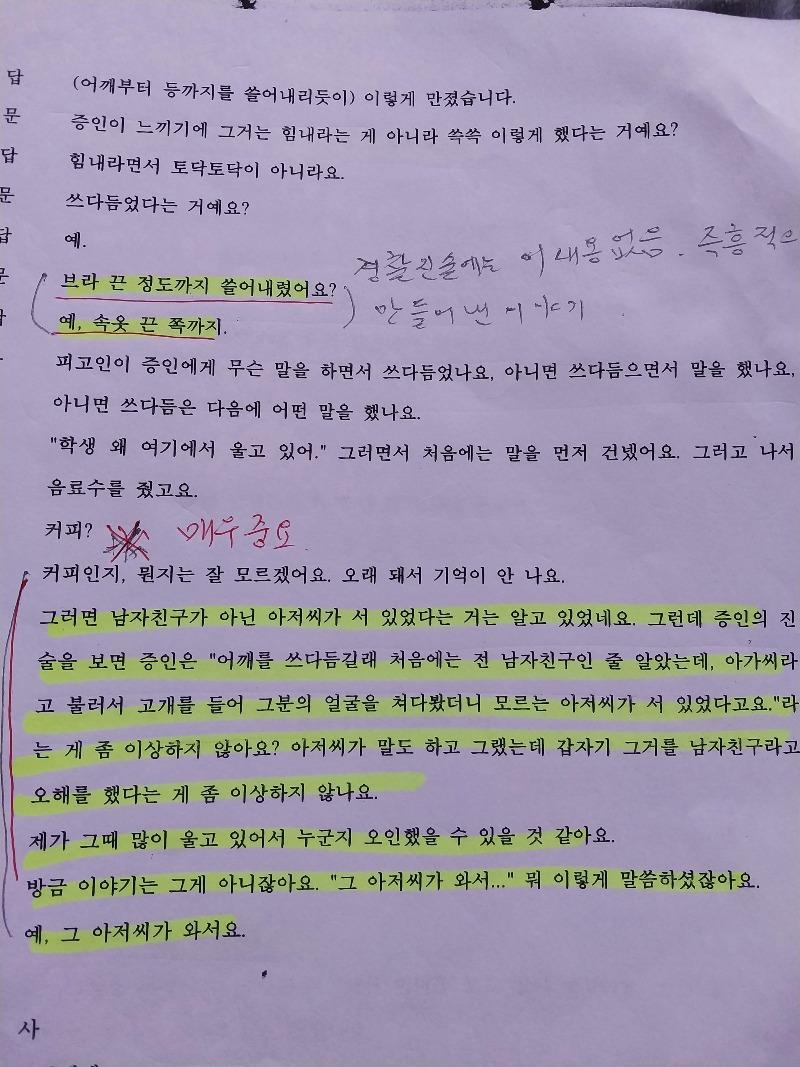 답 (어깨부터 등까지를 쓸어내리듯이) 이렇게 만졌습니다.
문 증인이 느끼기에 그거는 힘내라는 게 아니라 쓱쓱 이렇게 했다는 거예요?
답 힘내라면서 토닥토닥이 아니라요.
문 쓰다듬었다는 거예요?
답 예.
경찰진술에는 이 내용없음. 즉흥적으
문 브라 끈 정도까지 쓸어내렸어요?
만들어낸 이야기.
예, 속옷 끈 쪽까지.
피고인이 증인에게 무슨 말을 하면서 쓰다듬었나요, 아니면 쓰다듬으면서 말을 했나요,
아니면 쓰다듬은 다음에 어떤 말을 했나요.
"학생 왜 여기에서 울고 있어." 그러면서 처음에는 말을 먼저 건넸어요. 그러고 나서
음료수를 줬고요.
커피? 매우중요
커피인지, 뭔지는 잘 모르겠어요. 오래 돼서 기억이 안 나요.
그러면 남자친구가 아닌 아저씨가 서 있었다는 거는 알고 있었네요. 그런데 증인의 진
술을 보면 증인은 "어깨를 쓰다듬길래 처음에는 전 남자친구인 줄 알았는데, 아가씨라
고 불러서 고개를 들어 그분의 얼굴을 쳐다봤더니 모르는 아저씨가 서 있었다고요."라
는 게 좀 이상하지 않아요? 아저씨가 말도 하고 그랬는데 갑자기 그거를 남자친구라고
오해를 했다는 게 좀 이상하지 않나요.
제가 그때 많이 울고 있어서 누군지 오인했을 수 있을 것 같아요.
방금 이야기는 그게 아니잖아요. "그 아저씨가 와서..." 뭐 이렇게 말씀하셨잖아요.
예, 그 아저씨가 와서요.
사